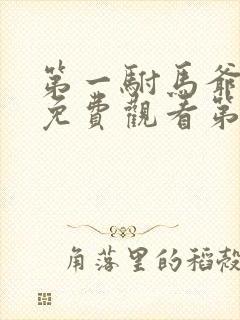 第一駙馬爺
免費觀看第
角落里的稻殼